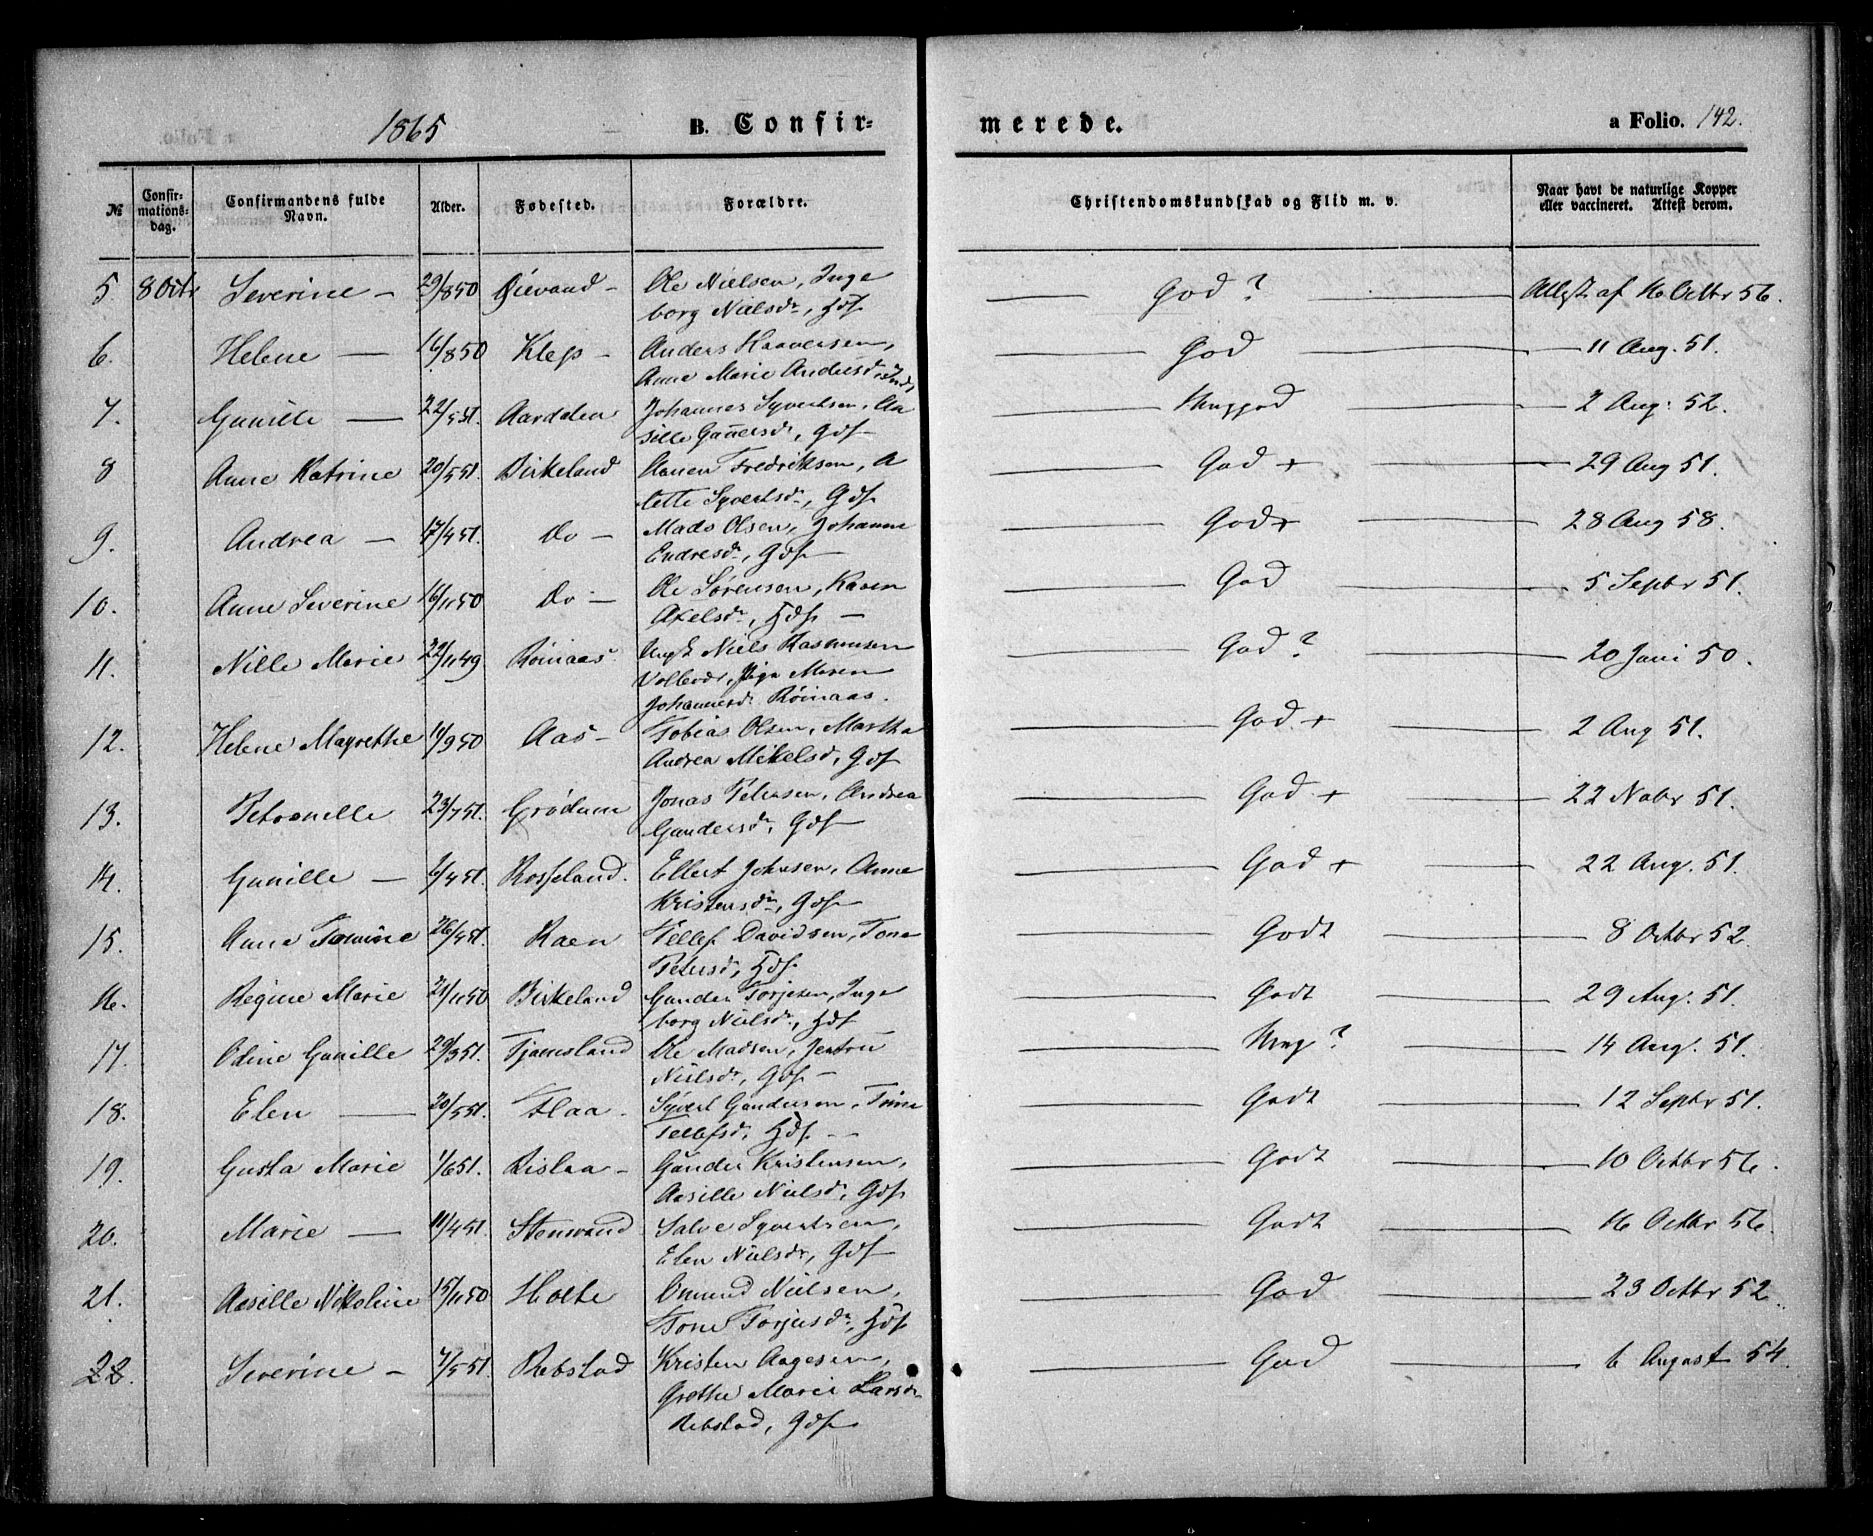 1865 B. Confir= merede. a Folio. 142.
№ Confir-mations-dag. Confirmandens fulde Navn. Alder. Fødested. Forældre. Christendomskundskab og Flid m. v. Naar havt de naturlige Kopper eller vaccineret. Attest derom.
5. 8 Octr Severine — 29/8 50 Øievand — Ole Nielsen, Inge God ? Attest af 16 Octbr 56.
borg Nielsdr, Hdf
6. Helene — 16/8 50 Klep — Anders Haaversen, God 11 Aug. 51.
Anne Marie Andersd,
7. Gunille — 22/5 51. Aardalen Johannes Syvertsen, Aa Meggod 2 Aug: 52.
sille Gunnersdr, Gdf
8 Anne Katrine 20/5 51. Birkeland Aanen Fredriksen, A God + 29 Aug 51.
lette Syvertsdr, Gdf
9. Andrea — 17/4 51. Do — Mads Olsen, Johanne God + 28 Aug 58.
Endresdr, Gdf —
10. Anne Severine 16/11 50 Do — Ole Sørensen, Karen God 5 Septbr 51.
Axelsdr, Hdf —
11. Nille Marie 22/11 49 Røinaas Ungk Niels Rasmusen God ? 20 Juni 50.
Pige Maren
Johannesdr Røinaas.
12. Helene Magrethe 11/9 50 Aas — Tobias Olsen, Martha God + 2 Aug 51.
Andrea Mikelsd, Gdf
13. Petronille 23/7 51. Grødum Jonas Petersen, Andrea God + 22 Nobr 51.
Gundersdr, Gdf
14. Gunille — 6/4 51. Rosseland. Ellert Johnsen, Anne God + 22 Aug. 51.
Kristensdr, Gdf
15. Anne Tomine 26/4 51. Raen Tellef Davidsen, Tone Godt 8 Octbr 52
Petersd, Hdf.
16. Regine Marie 21/11 50 Birkeland Gunder Torjesen, Inge Godt 29 Aug. 51.
borg Nielsdr, Hdf
17. Odine Gunille 29/3 51. Tjomsland Ole Madsen, Jertru Meg ? 14 Aug. 51.
Nielsdr, Gdf —
18. Elen — 20/5 51. Flaa. Syvert Gundersen, Trine Godt 12 Septbr 51.
Tellefsd, Hdf. —
19. Gusta Marie 1/6 51. Rislaa — Gunder Kristensen, Godt 10 Octbr 56.
Aasille Nielsd, Gdf
20. Marie — 11/4 51. Stenvand Salve Syvertsen, Godt 16 Octbr 56.
Elen Nielsdr, Gdf
21. Aasille Nikoline 15/11 50 Holte Omund Nielsen, God 23 Octbr 52.
Tone Torjusdr, Hdf
22. Severine — 7/5 51. Rebstad Kristen Aagesen, God 6 August 54.
Grethe Marie Larsdr
Rebstad, Gdf